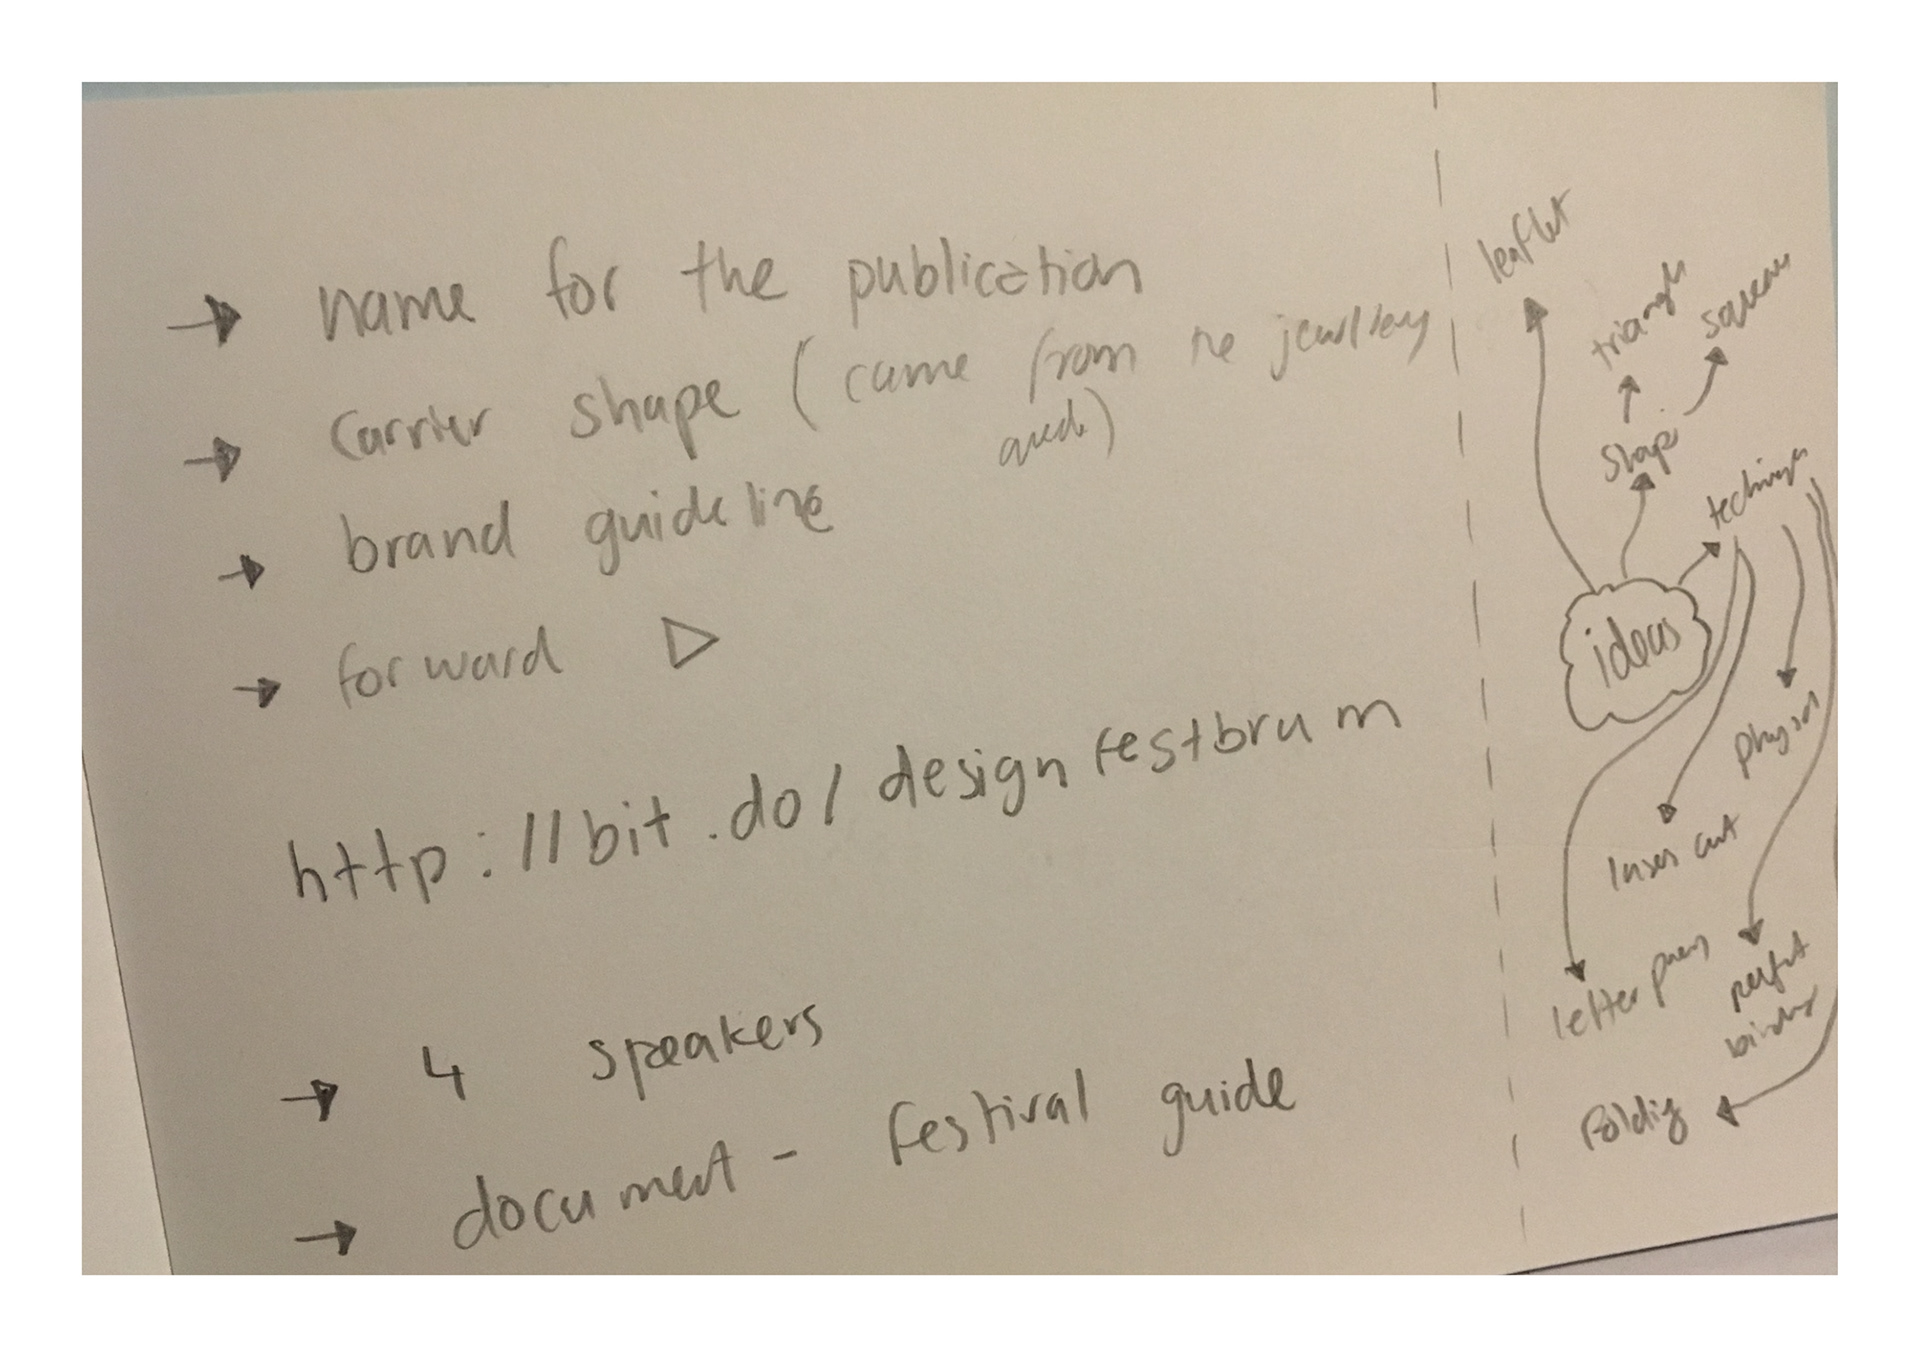 → name for the publication
→ Carrier shape (came from the
)
→ brand guideline
→ forward ▷
http://bit.do/designfestbrum
→ 4 speakers
→ document - Festival guide
leaflet
triangle
squares
shape
ideas
laser cut
letter press
perfect
Folding